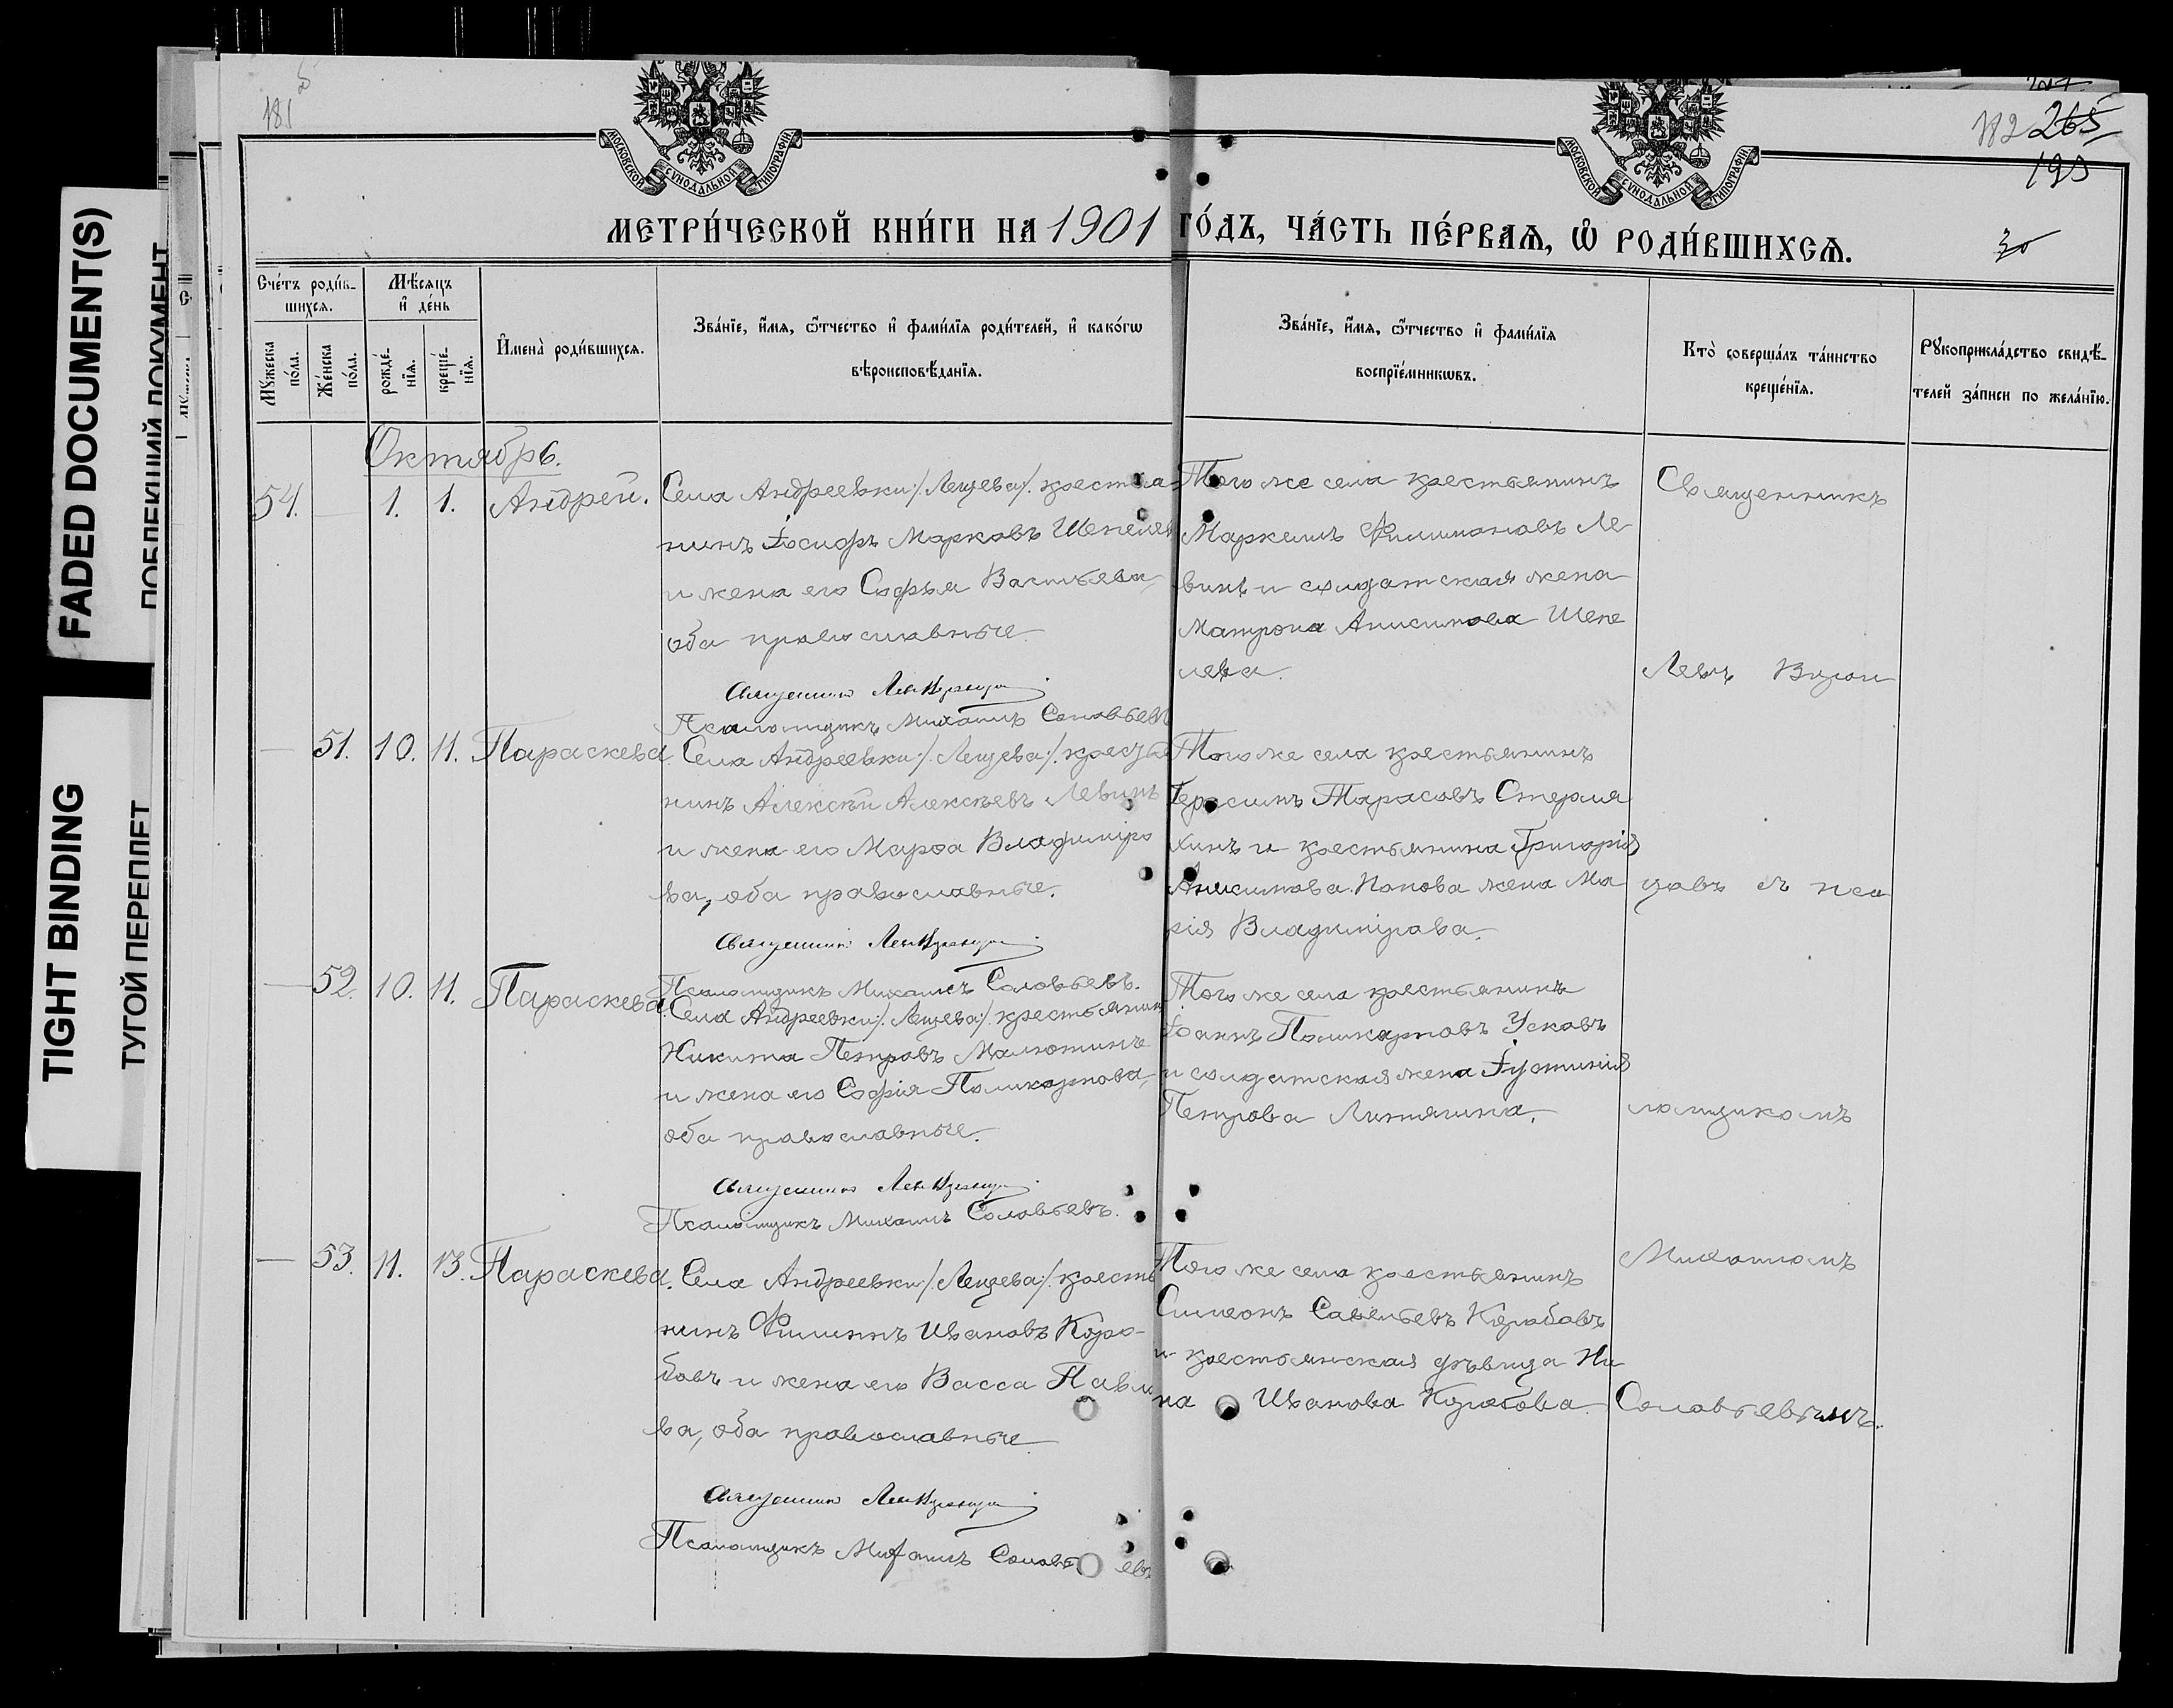 FADED DOCUMENT(S)
TIGHT BINDING
ТУГОЙ ПЕРЕПЛЕТ
181
182 265
193
30
МОСКОВСКОЙ СУНОДАЛЬНОЙ ТИПОГРАФІИ
МОСКОВСКОЙ СУНОДАЛЬНОЙ ТИПОГРАФІИ
МЕТРИ́ЧЕСКОЙ КНИ́ГИ НА 1901 ГО́ДЪ, ЧА́СТЬ ПЕ́РВАѦ, Ѡ҆ РОДИ́ВШИХСѦ.
Сче́тъ роди́в-
шихсѧ.
Мѣ́сѧцъ
и҆ де́нь
Мꙋ́жеска по́ла.
Же́нска по́ла.
рожде́-
нїѧ.
креще́-
нїѧ.
И҆мена̀ роди́вшихсѧ.
Зва́нїе, и҆́мѧ, ѻ҆́тчество и҆ фами́лїѧ роди́телей, и҆ како́гѡ
вѣроисповѣ́данїѧ.
Зва́нїе, и҆́мѧ, ѻ҆́тчество и҆ фами́лїѧ
воспрїе́мникѡвъ.
Кто̀ соверша́лъ та́инство
креще́нїѧ.
Рꙋкоприкла́дство свидѣ́-
телей за́писи по жела́нїю.
Октябрь.
54. — 1. 1. Андрей.
Села Андреевки /Лещева/. крестья-
нинъ Іосифъ Марковъ Шепелев
и жена его Софья Васильева,
оба православные.
Священникъ Левъ
Псаломщикъ Михаилъ Соловьевъ
Того же села крестьянинъ
Маркеллъ Филимоновъ Ле
винъ и солдатская жена
Матрона Анисимова Шепе
лева.
Священникъ
Левъ
— 51. 10. 11. Параскева.
Села Андреевки /Лещева/. крестья
нинъ Алексѣй Алексѣевъ Левинъ
и жена его Марѳа Владиміро
ва, оба православные.
Священникъ Левъ
Псаломщикъ Михаилъ Соловьевъ.
Того же села крестьянинъ
Герасимъ Тарасовъ Стерля
хинъ и крестьянина Григорія
Анисимова Попова жена Ма
рія Владимірова.
съ пса
— 52. 10. 11. Параскева.
Села Андреевки /Лещева/. крестьянинъ
Никита Петровъ Малютинъ
и жена его Софія Поликарпова,
оба православные.
Священникъ Левъ
Псаломщикъ Михаилъ Соловьевъ.
Того же села крестьянинъ
Іоаннъ Поликарповъ Усковъ
и солдатская жена Іустинія
Петрова
ломщикомъ
— 53. 11. 13. Параскева.
Села Андреевки /Лещева/. кресть
нинъ Филиппъ Ивановъ Коро-
бовъ и жена его Васса Павло
ва, оба православные.
Священникъ Левъ
Псаломщикъ Михаилъ Соловьевъ
Того же села крестьянинъ
Симеонъ Савельевъ Коробовъ
и крестьянская дѣвица Ни
на Иванова Коробова.
Михаиломъ
Соловьевымъ.